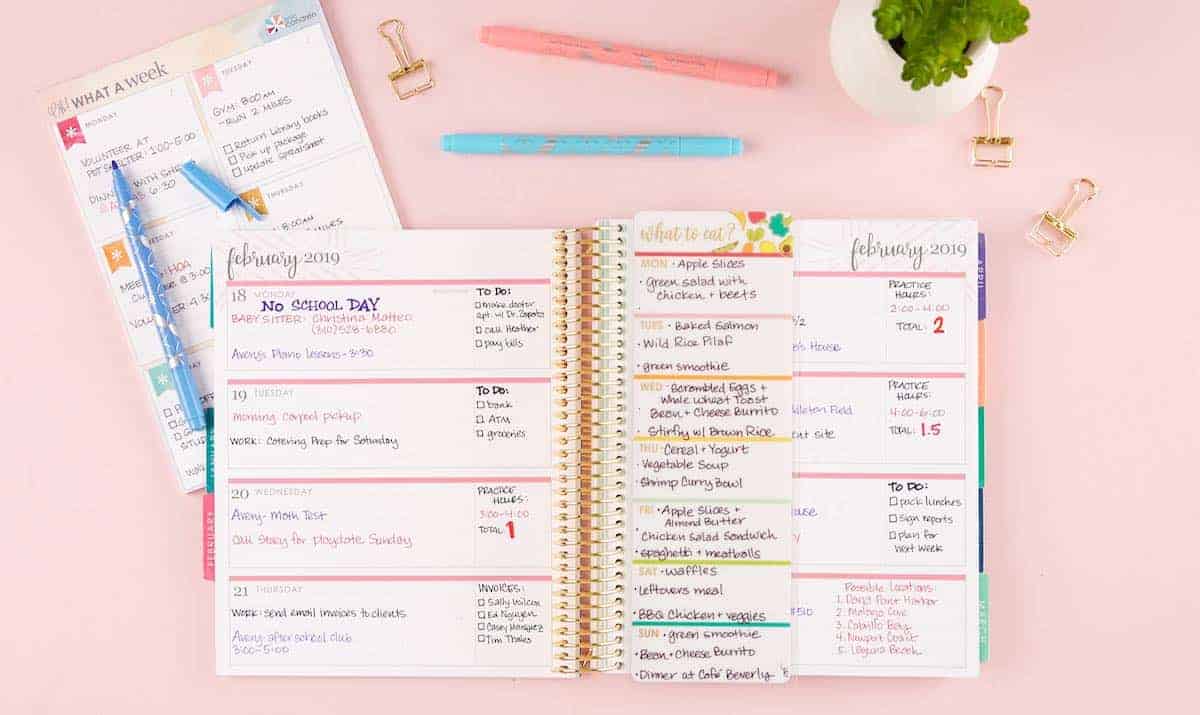 Oh! WHAT A week
MONDAY
VOLUNTEER AT
PET SHELTER: 1:00-5:00
6:30
TUESDAY
GYM: 8:00AM
-RUN 2 MILES
Return Library books
Pick up package
Update Spreadsheet
THURSDAY
8:00AM
february 2019
18 MONDAY
NO SCHOOL DAY
BABYSITTER: Christina Matteo
(310) 528-6880
Avery's Piano lessons - 3:30
TO DO:
make doctor
apt. w/ Dr. Zapata
call Heather
pay bills
19 TUESDAY
Morning Carpool pickup
WORK: Catering Prep for Saturday
TO DO:
bank
ATM
groceries
20 WEDNESDAY
Avery - Math Test
Call Stacy for playdate Sunday
PRACTICE
HOURS:
3:00-4:00
TOTAL: 1
21 THURSDAY
WORK: send email invoices to clients
Avery - after school club
3:00-5:00
INVOICES:
Sally Wilcox
Ed Nguyen
Casey Marquez
Tim Thales
FEBRUARY
what to eat?
MON · Apple Slices
· Green salad with
chicken + beets
TUES · Baked Salmon
· Wild Rice Pilaf
· green smoothie
WED · Scrambled Eggs +
Whole Wheat Toast
· Bean + Cheese Burrito
· Stirfry w/ Brown Rice
THU · Cereal + Yogurt
· Vegetable Soup
· Shrimp Curry Bowl
FRI · Apple Slices +
Almond Butter
· Chicken Salad Sandwich
· spaghetti + meatballs
SAT · waffles
· Leftovers meal
· BBQ Chicken + veggies
SUN · green smoothie
· Bean + Cheese Burrito
· Dinner at Café Beverly
february 2019
PRACTICE
HOURS:
2:00-4:00
TOTAL: 2
's House
PRACTICE
HOURS:
4:00-6:00
TOTAL: 1.5
Field
site
TO DO:
pack lunches
Sign reports
plan for
next week
Possible Locations:
1. Dana Point Harbor
2. Malaga Cove
3. Cabrillo Bay
4. Newport Coast
5. Laguna Beach
APRIL
MARCH